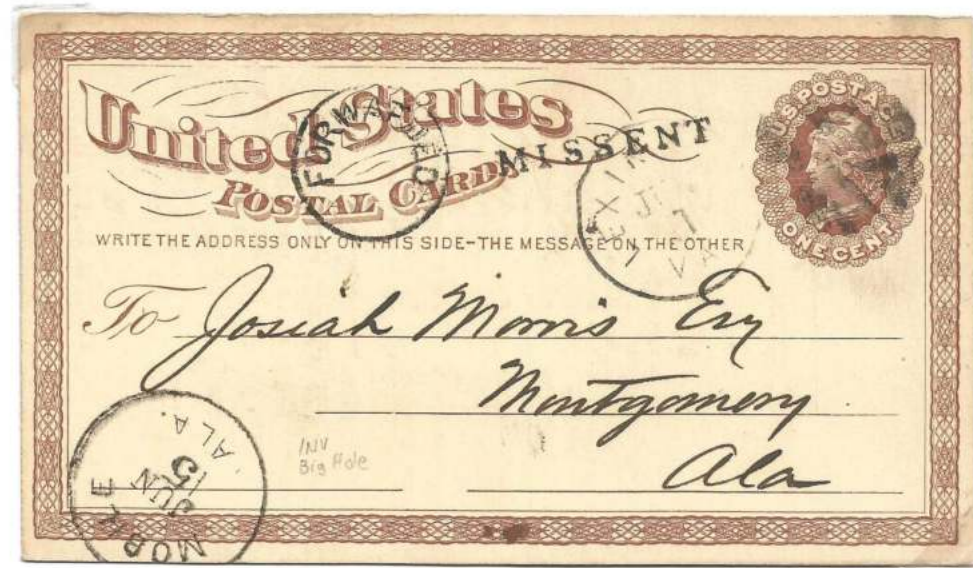 United States
POSTAL CARD
FORWARDED
MISSENT
U.S. POSTAGE
ONE CENT
LEXIN
7
VA
WRITE THE ADDRESS ONLY ON THIS SIDE-THE MESSAGE ON THE OTHER
To Josiah Morris Esq
Montgomery
Ala
INV
Big Hole
MOBILE
JUN
ALA.